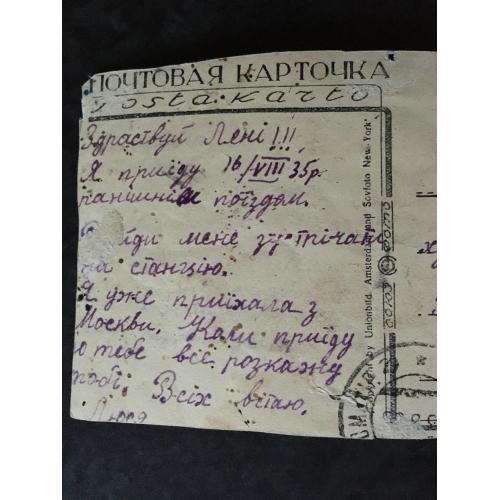 ПОЧТОВАЯ КАРТОЧКА
Poŝta karto
Здраствуй Лені!!!
Я приїду 16/VIII 35р.
раншнім поїздом.
йди мене зустрічать
на станцію.
Я уже приїхала з
Москви. Кали приїду
о тебе всё розкажу
тобі. Всіх вітаю.
Люся
Copyright by Unionbild Amsterdam and Sovfoto New-York
СОЮЗ ФОТО